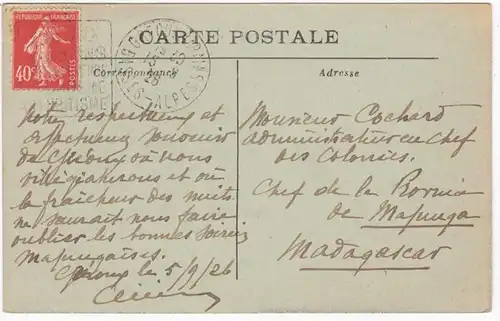 RÉPUBLIQUE FRANÇAISE
40c
POSTES
CARTE POSTALE
Correspondance
Adresse
TISME
ALPES
Notre respectueux et
affectueux souvenir
de où nous
villégiaturons et où
la fraîcheur des nuits
ne saurait nous faire
oublier les bonnes
majungaises.
le 5/9/26
Monsieur Cochard
administrateur en Chef
des Colonies.
Chef de la
de Majunga
Madagascar